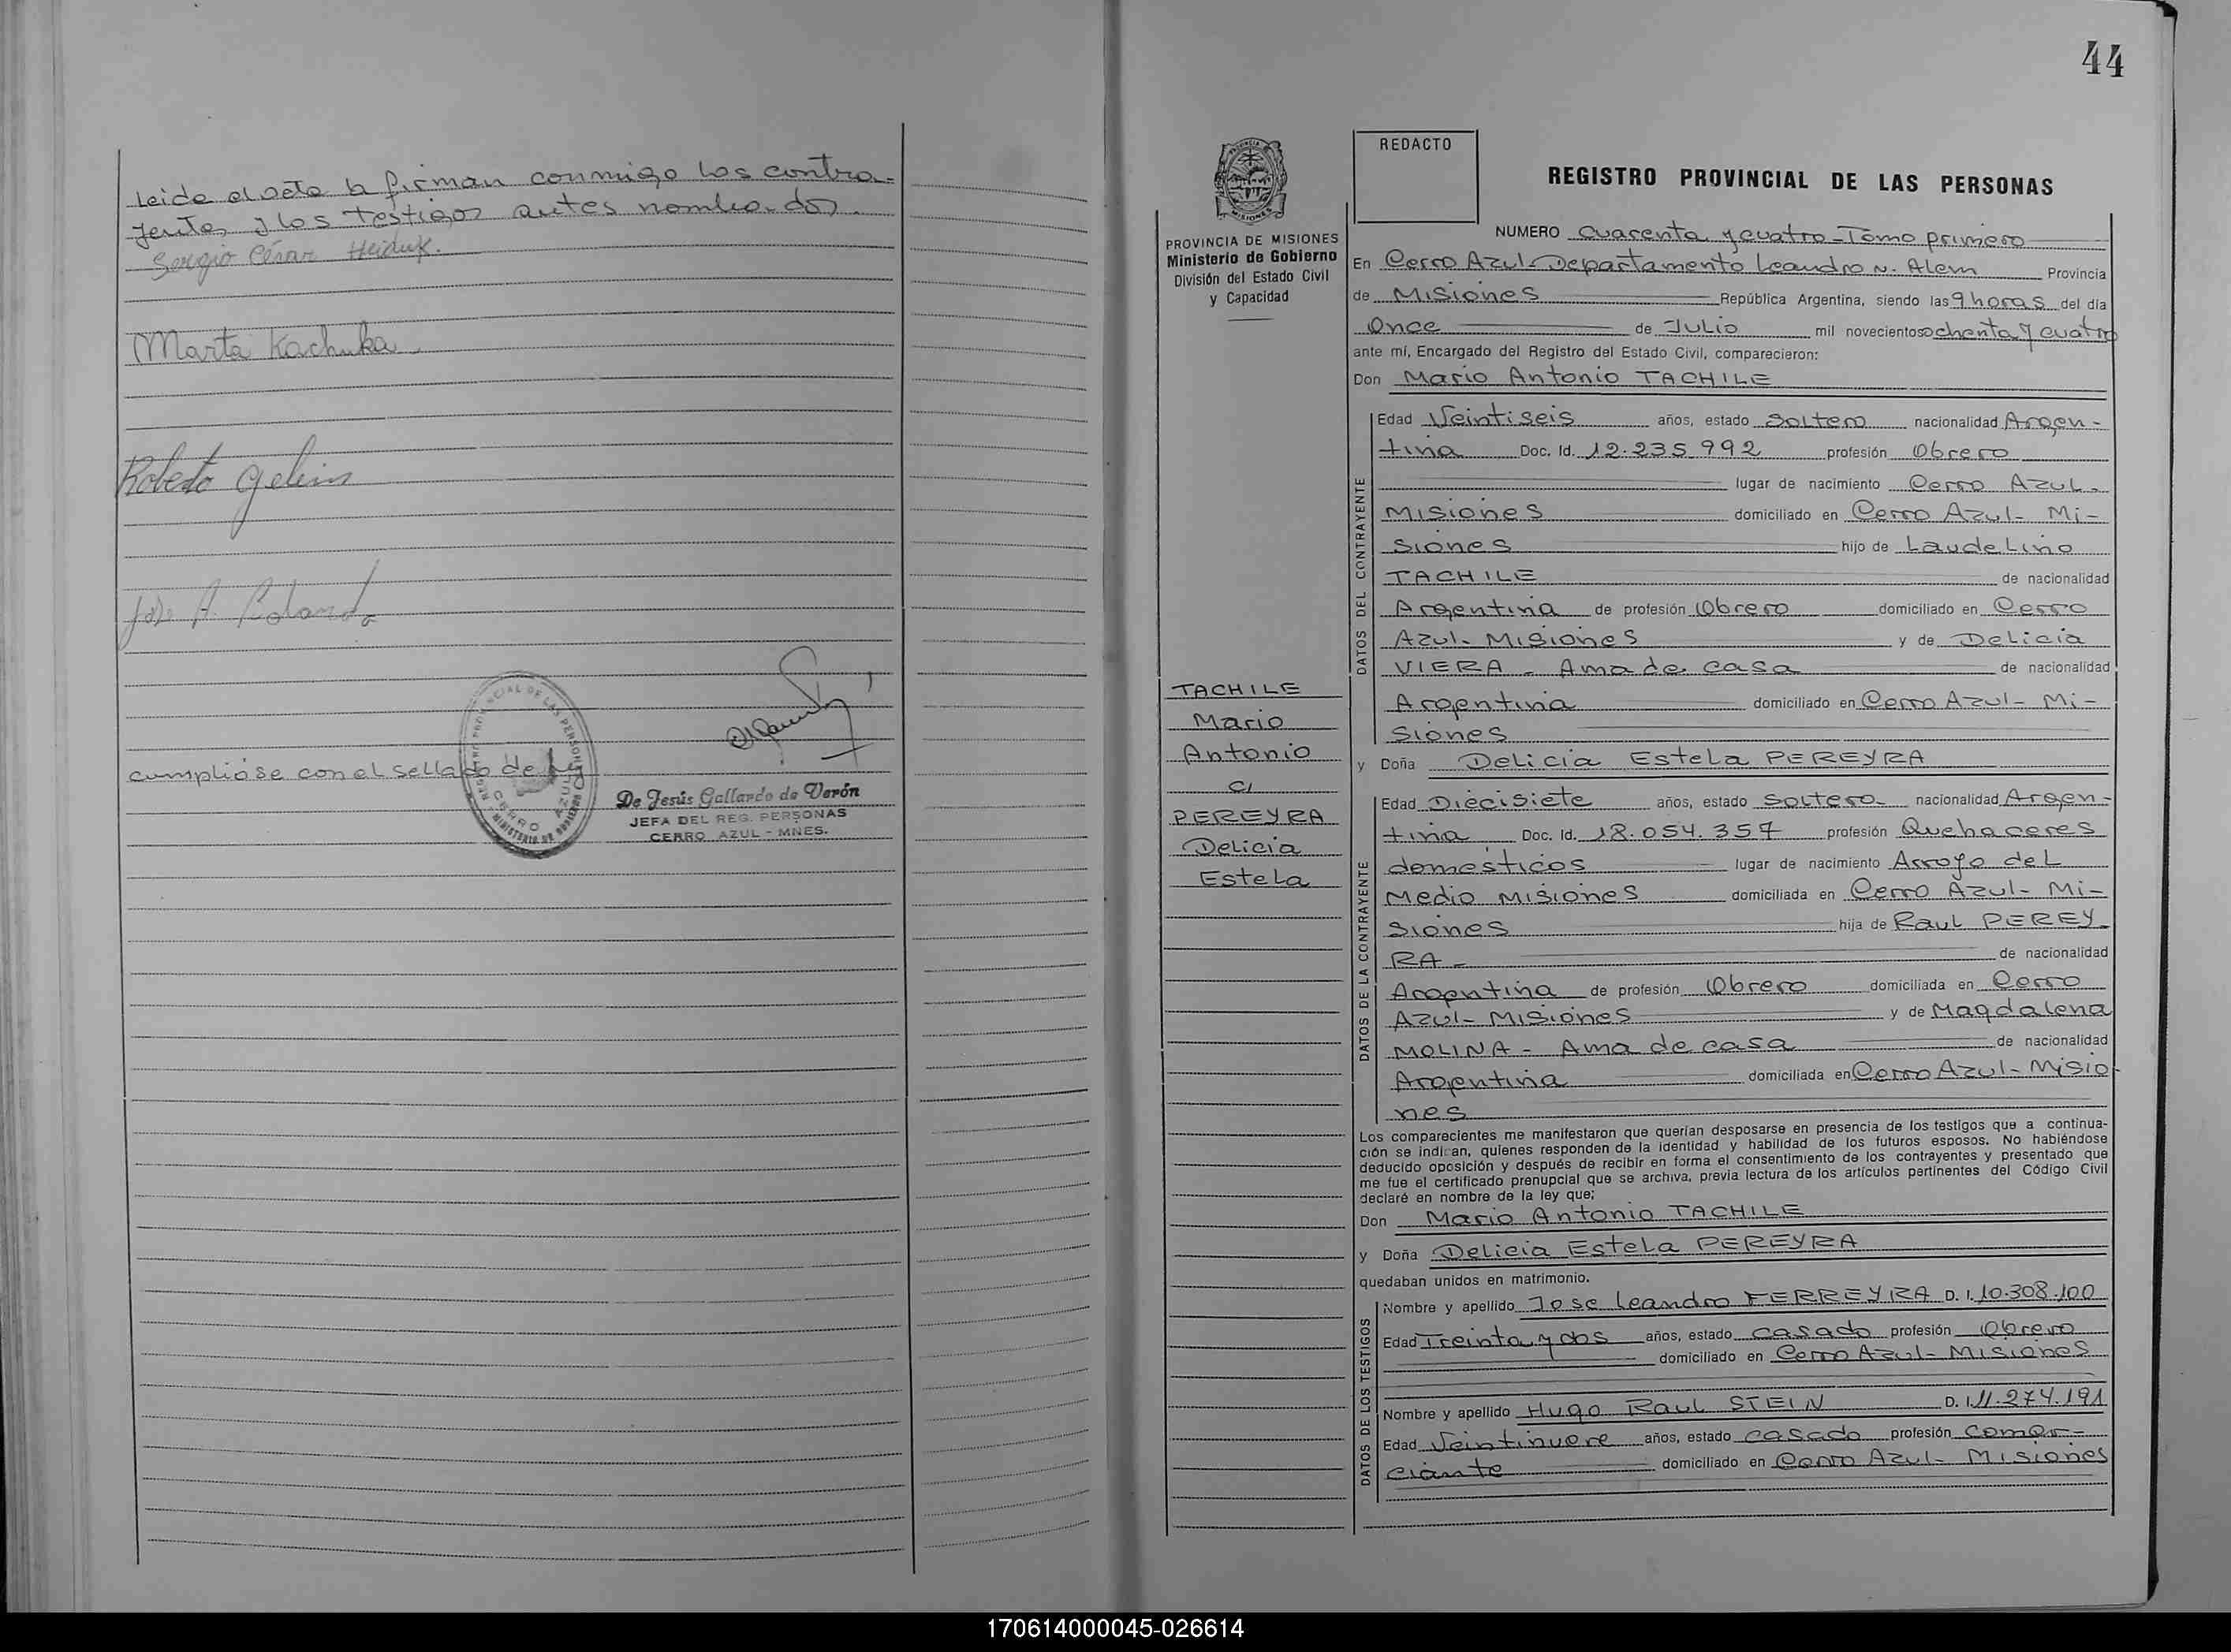 Leida el acta la firman conmigo los contra-
yentes y los testigos antes nombrados.
Sergio César Heiduk.
Marta Kachuka
Roberto
José A.
cumplióse con el sellado de ley
De Jesús Gallardo de Verón
JEFA DEL REG. PERSONAS
CERRO AZUL - MNES.
44
REDACTO
REGISTRO PROVINCIAL DE LAS PERSONAS
PROVINCIA DE MISIONES
Ministerio de Gobierno
División del Estado Civil
y Capacidad
TACHILE
Mario
Antonio
c/
PEREYRA
Delicia
Estela
NUMERO cuarenta y cuatro-Tomo primero
En Cerro Azul-Departamento Leandro N. Alem Provincia
de Misiones República Argentina, siendo las 9 horas del día
Once de Julio mil novecientos ochenta y cuatro
ante mí, Encargado del Registro del Estado Civil, comparecieron:
Don Mario Antonio TACHILE
DATOS DEL CONTRAYENTE
Edad Veintiseis años, estado soltero nacionalidad Argen-
tina Doc. Id. 12.235.992 profesión Obrero
lugar de nacimiento Cerro Azul-
Misiones domiciliado en Cerro Azul- Mi-
siones hijo de Laudelino
TACHILE de nacionalidad
Argentina de profesión Obrero domiciliado en Cerro
Azul- Misiones y de Delicia
VIERA - Ama de casa de nacionalidad
Argentina domiciliado en Cerro Azul- Mi-
siones
y Doña Delicia Estela PEREYRA
DATOS DE LA CONTRAYENTE
Edad Diecisiete años, estado soltera- nacionalidad Argen-
tina Doc. Id. 18.054.357 profesión Quehaceres
domesticos lugar de nacimiento Arroyo del
Medio Misiones domiciliada en Cerro Azul- Mi-
siones hija de Raul PEREY
RA- de nacionalidad
Argentina de profesión Obrero domiciliada en Cerro
Azul- Misiones y de Magdalena
MOLINA - Ama de casa de nacionalidad
Argentina domiciliada en Cerro Azul- Misio-
nes
Los comparecientes me manifestaron que querían desposarse en presencia de los testigos que a continua-
ción se indican, quienes responden de la identidad y habilidad de los futuros esposos. No habiéndose
deducido oposición y después de recibir en forma el consentimiento de los contrayentes y presentado que
me fue el certificado prenupcial que se archiva, previa lectura de los artículos pertinentes del Código Civil
declaré en nombre de la ley que;
Don Mario Antonio TACHILE
y Doña Delicia Estela PEREYRA
quedaban unidos en matrimonio.
DATOS DE LOS TESTIGOS
Nombre y apellido Jose Leandro FERREYRA D. I. 10.308.100
Edad Treinta y dos años, estado casado profesión Obrero
domiciliado en Cerro Azul- Misiones
Nombre y apellido Hugo Raul STEIN D. I. 11.274.191
Edad Veintinueve años, estado casado profesión comer-
ciante domiciliado en Cerro Azul- Misiones
170614000045-026614